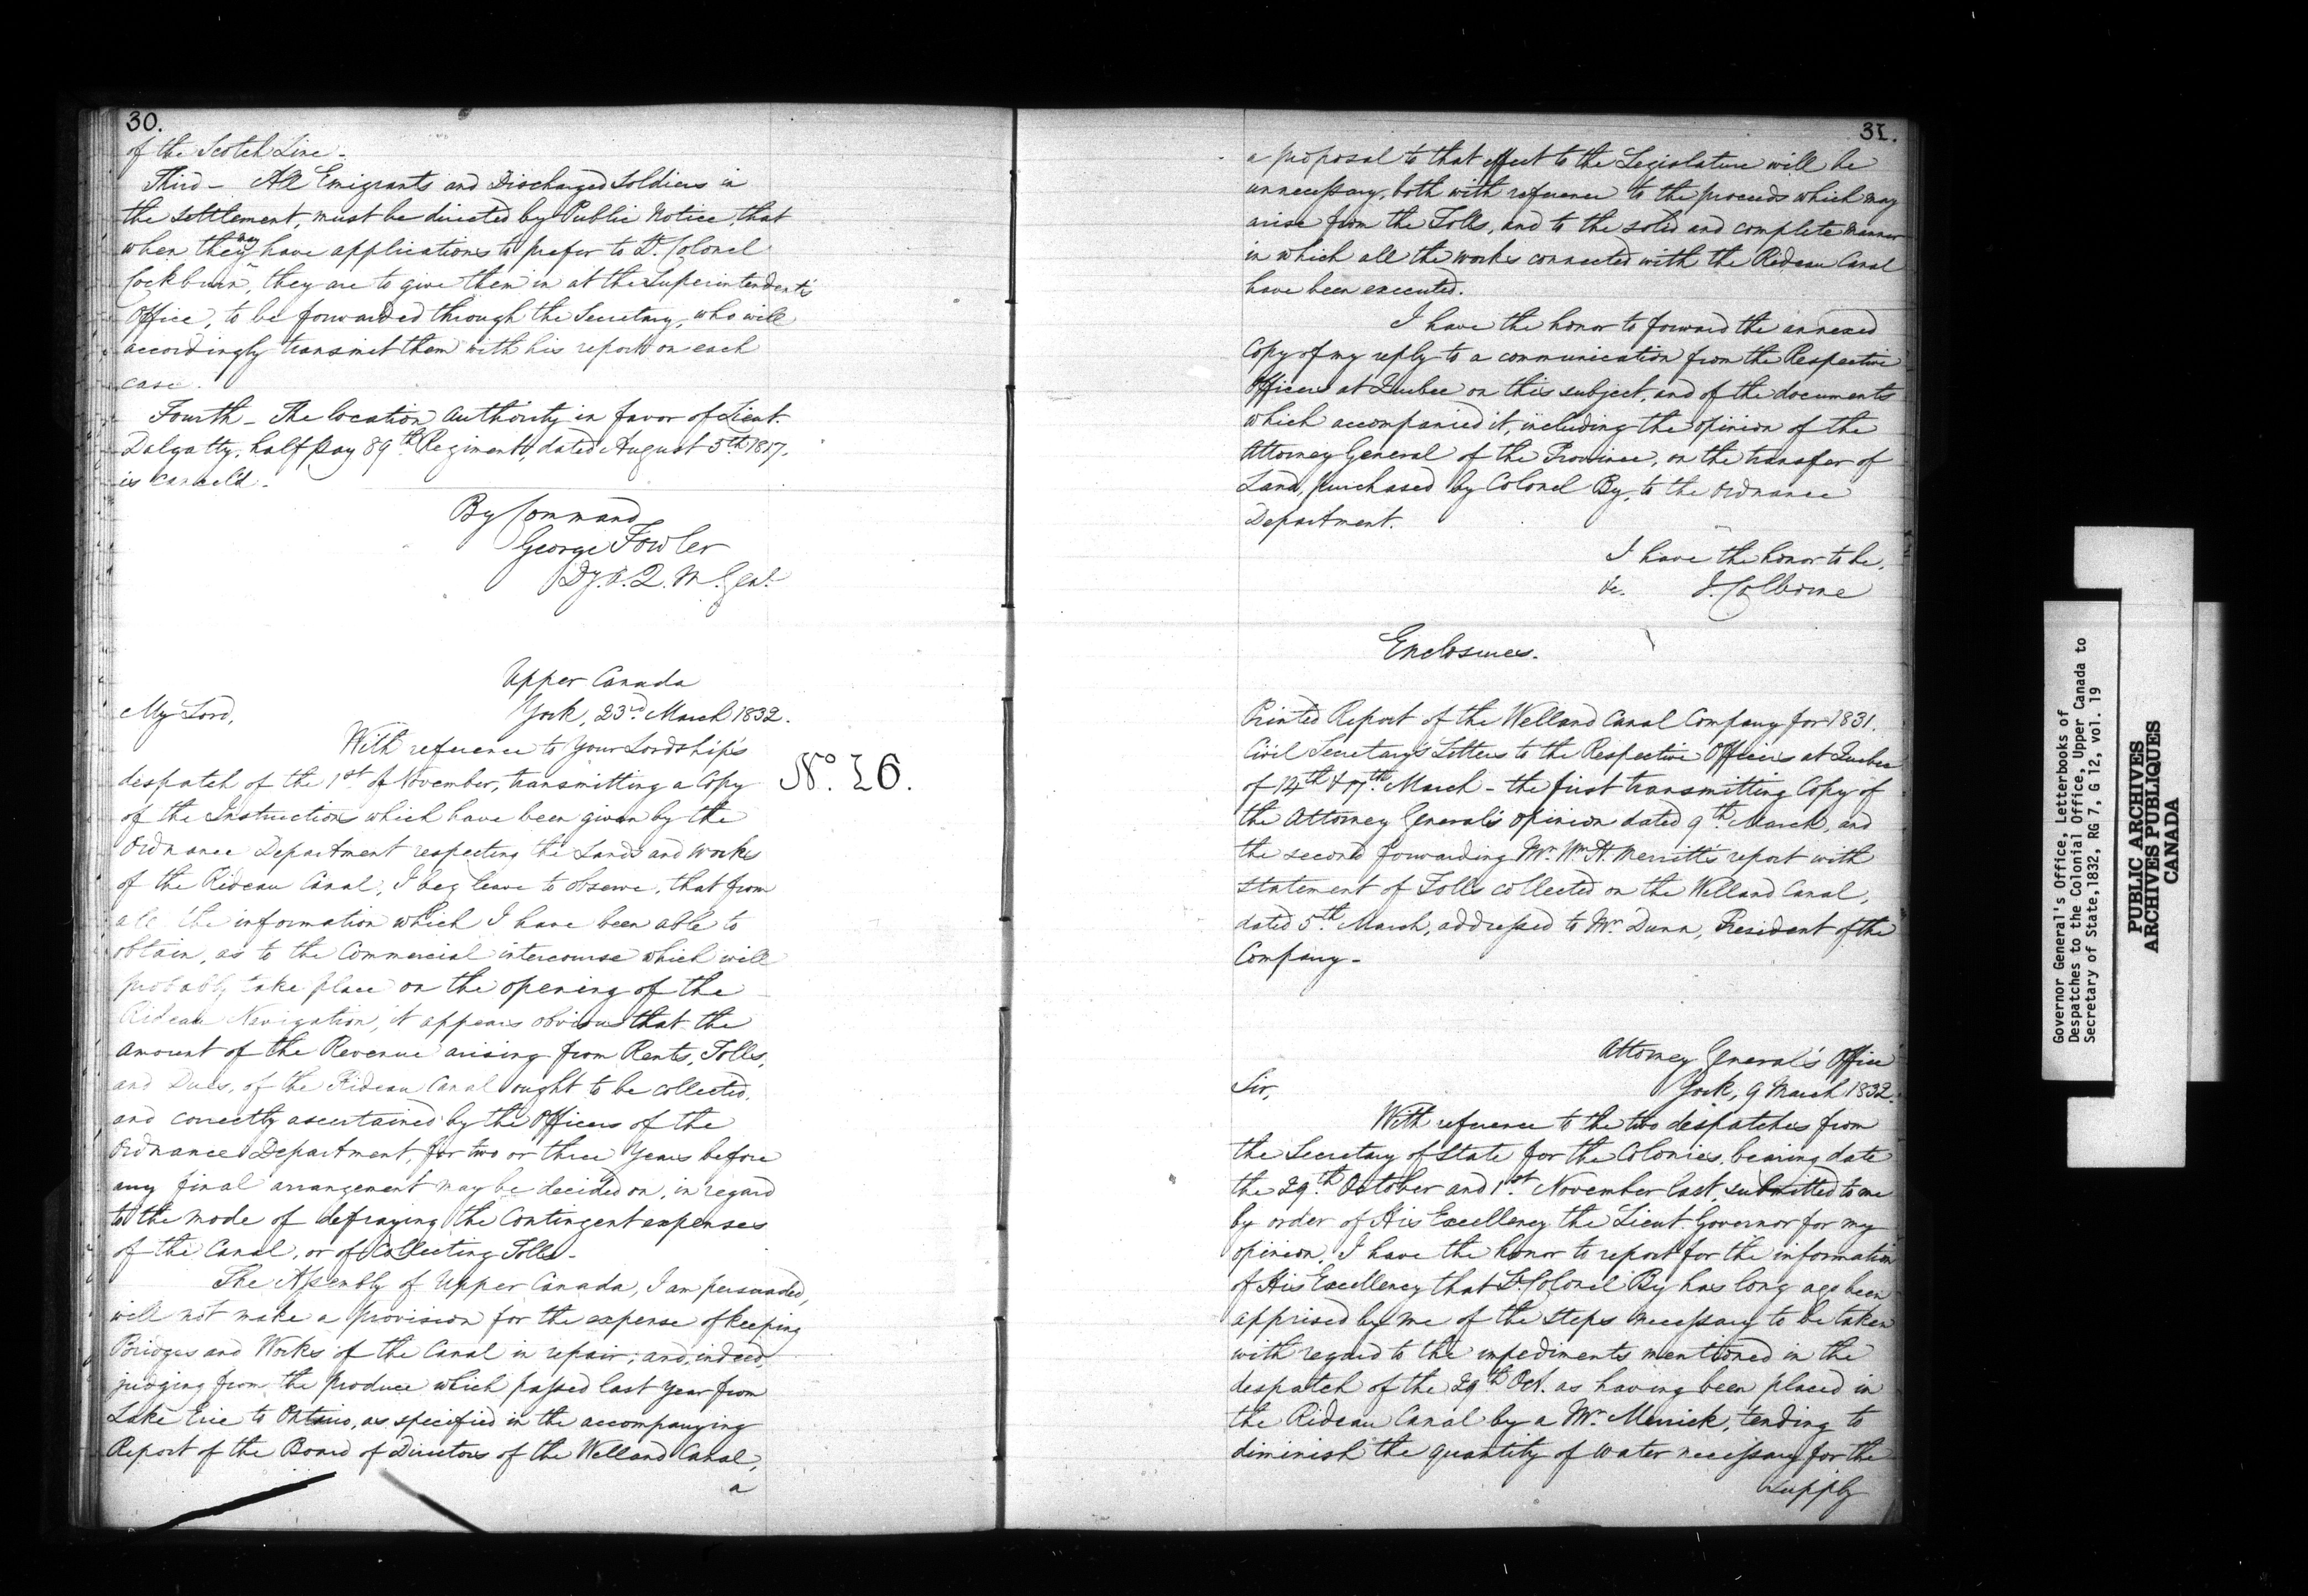 30.
of the Scotch Line -
Third - All Emigrants and Discharged Soldiers in
the settlement, must be directed by Public Notice, that
when they may have applications to prefer to Lt. Colonel
Cockburn, they are to give them in at the Superintendent's
Office, to be forwarded through the Secretary, who will
accordingly transmit them with his report on each
case.
Fourth - The location Authority in favor of Lieut.
Dalgatty, half pay 89th Regiment, dated August 5th 1817.
is canceld.
By Command
George Fowler
Dy. A. Q. M. Genl.
Upper Canada
York, 23rd March 1832.
My Lord,
With reference to Your Lordship's
despatch of the 1st of November, transmitting a Copy
No. 16.
of the Instructions which have been given by the
Ordnance Department respecting the Lands and Works
of the Rideau Canal, I beg leave to observe, that from
all the information which I have been able to
obtain, as to the Commercial intercourse which will
probably take place on the opening of the
Rideau Navigation, it appears obvious that the
amount of the Revenue arising from Rents, Tolls,
and Dues, of the Rideau Canal ought to be collected,
and correctly ascertained by the Officers of the
Ordnance Department, for two or three Years before
any final arrangement may be decided on, in regard
to the mode of defraying the Contingent expenses
of the Canal, or of Collecting Tolls -
The Assembly of Upper Canada, I am persuaded,
will not make a provision for the expense of keeping
Bridges and Works of the Canal in repair; and, indeed,
judging from the produce which passed last year from
Lake Erie to Ontario, as specified in the accompanying
Report of the Board of Directors of the Welland Canal,
a
31.
a proposal to that effect to the Legislature will be
unnecessary, both with reference to the proceeds which may
arise from the Tolls, and to the solid and complete manner
in which all the works connected with the Rideau Canal
have been executed.
I have the honor to forward the annexed
Copy of my reply to a communication from the Respective
Officers at Quebec on this subject, and of the documents
which accompanied it, including the opinion of the
Attorney General of the Province, on the transfer of
Land, purchased by Colonel By, to the Ordnance
Department.
I have the honor to be,
&c. J. Colborne
Enclosures.
Printed Report of the Welland Canal Company for 1831.
Civil Secretary's Letters to the Respective Officers at Quebec
of 14th & 17th March - the first transmitting Copy of
the Attorney General's opinion dated 9th March, and
the second forwarding Mr. Wm. H. Merritt's report with
statement of Tolls collected on the Welland Canal,
dated 5th March, addressed to Mr. Dunn, President of the
Company -
Attorney General's Office
York, 9 March 1832.
Sir,
With reference to the two despatches from
the Secretary of State for the Colonies, bearing date
the 29th October and 1st November last, submitted to me
by order of His Excellency the Lieut. Governor for my
opinion, I have the honor to report for the information
of His Excellency that Lt. Colonel By has long ago been
apprised by me of the steps necessary to be taken
with regard to the impediments mentioned in the
despatch of the 29th Oct. as having been placed in
the Rideau Canal by a Mr. Merrick, tending to
diminish the quantity of water necessary for the
supply
Governor General's Office, Letterbooks of
Despatches to the Colonial Office, Upper Canada to
Secretary of State,1832, RG 7, G 12, vol. 19
PUBLIC ARCHIVES
ARCHIVES PUBLIQUES
CANADA